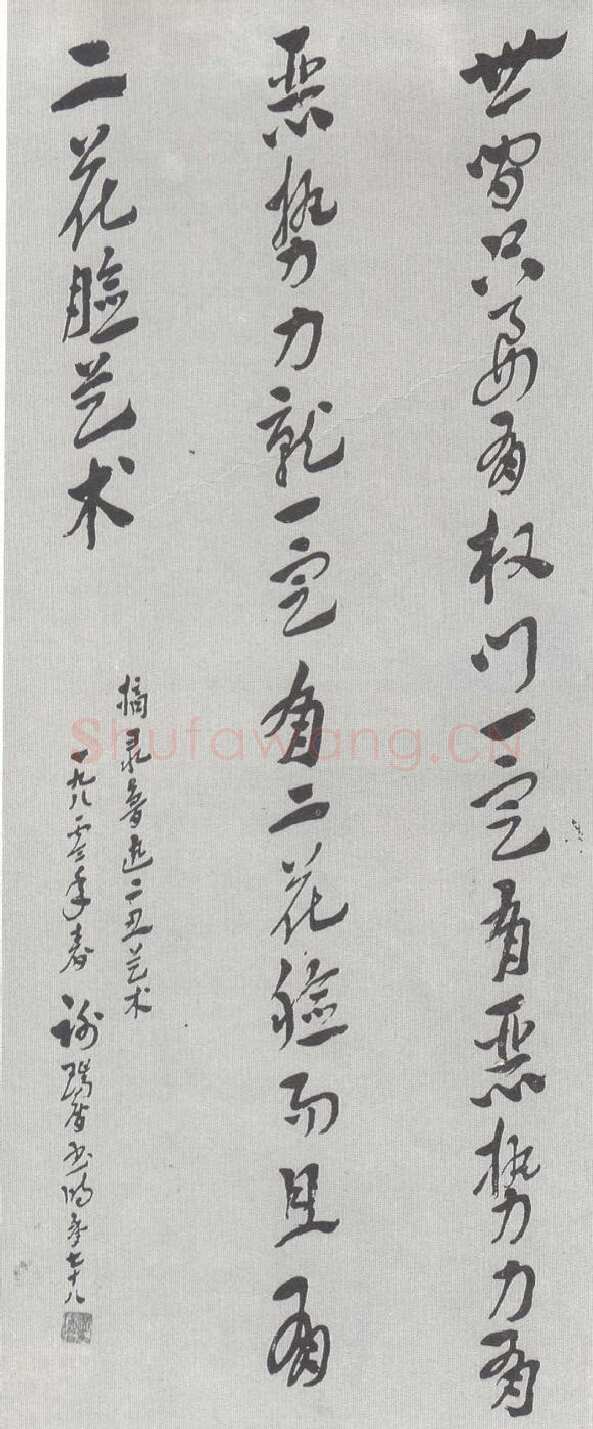 世间只要有权门一定有恶势力有
恶势力就一定有二花脸而且有
二花脸艺术
摘录鲁迅二丑艺术
一九八零年春 谢瑞阶书时年七十八
Shufawang.CN